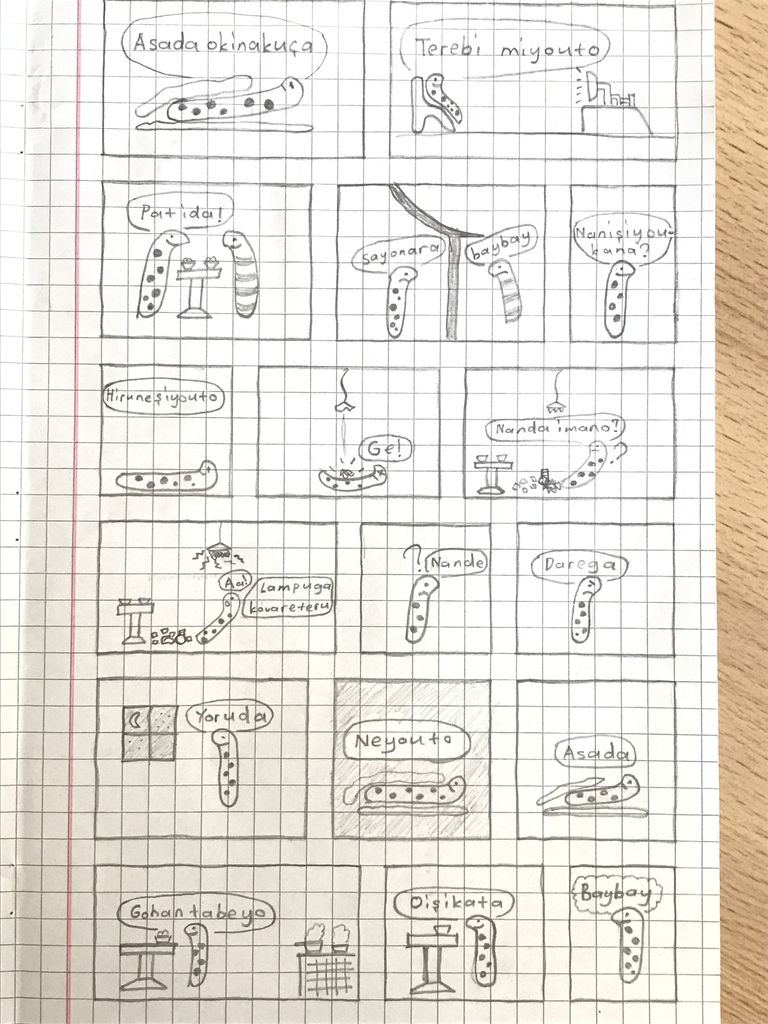 Asada okinakuça
Terebi miyouto
Patida!
Sayonara
baybay
Nanişiyou-
kana?
Hiruneşiyouto
Ge!
Nanda imano?
?
Aa!
Lampuga
kovareteru
?
Nande
Darega
Yoruda
Neyouto
Asada
Gohan tabeyo
Oişikata
Baybay